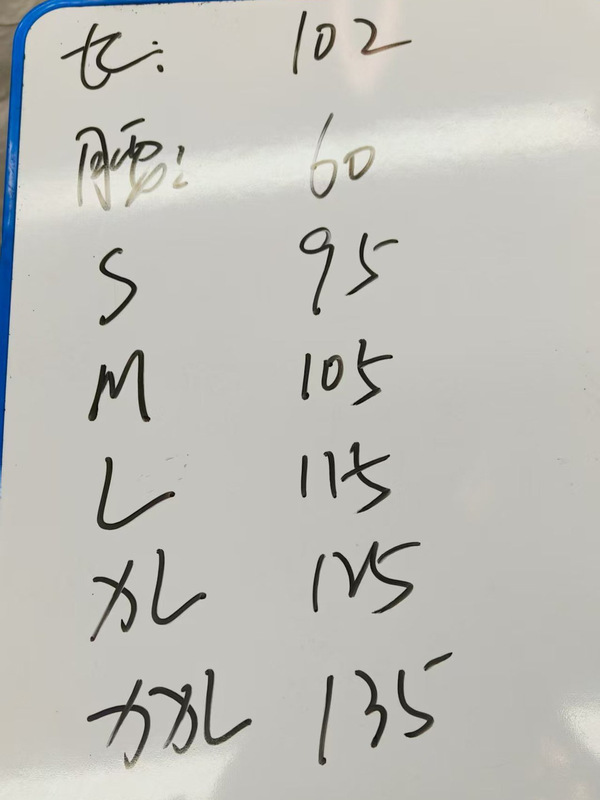 长: 102
腰: 60
S 95
M 105
L 115
XL 125
XXL 135